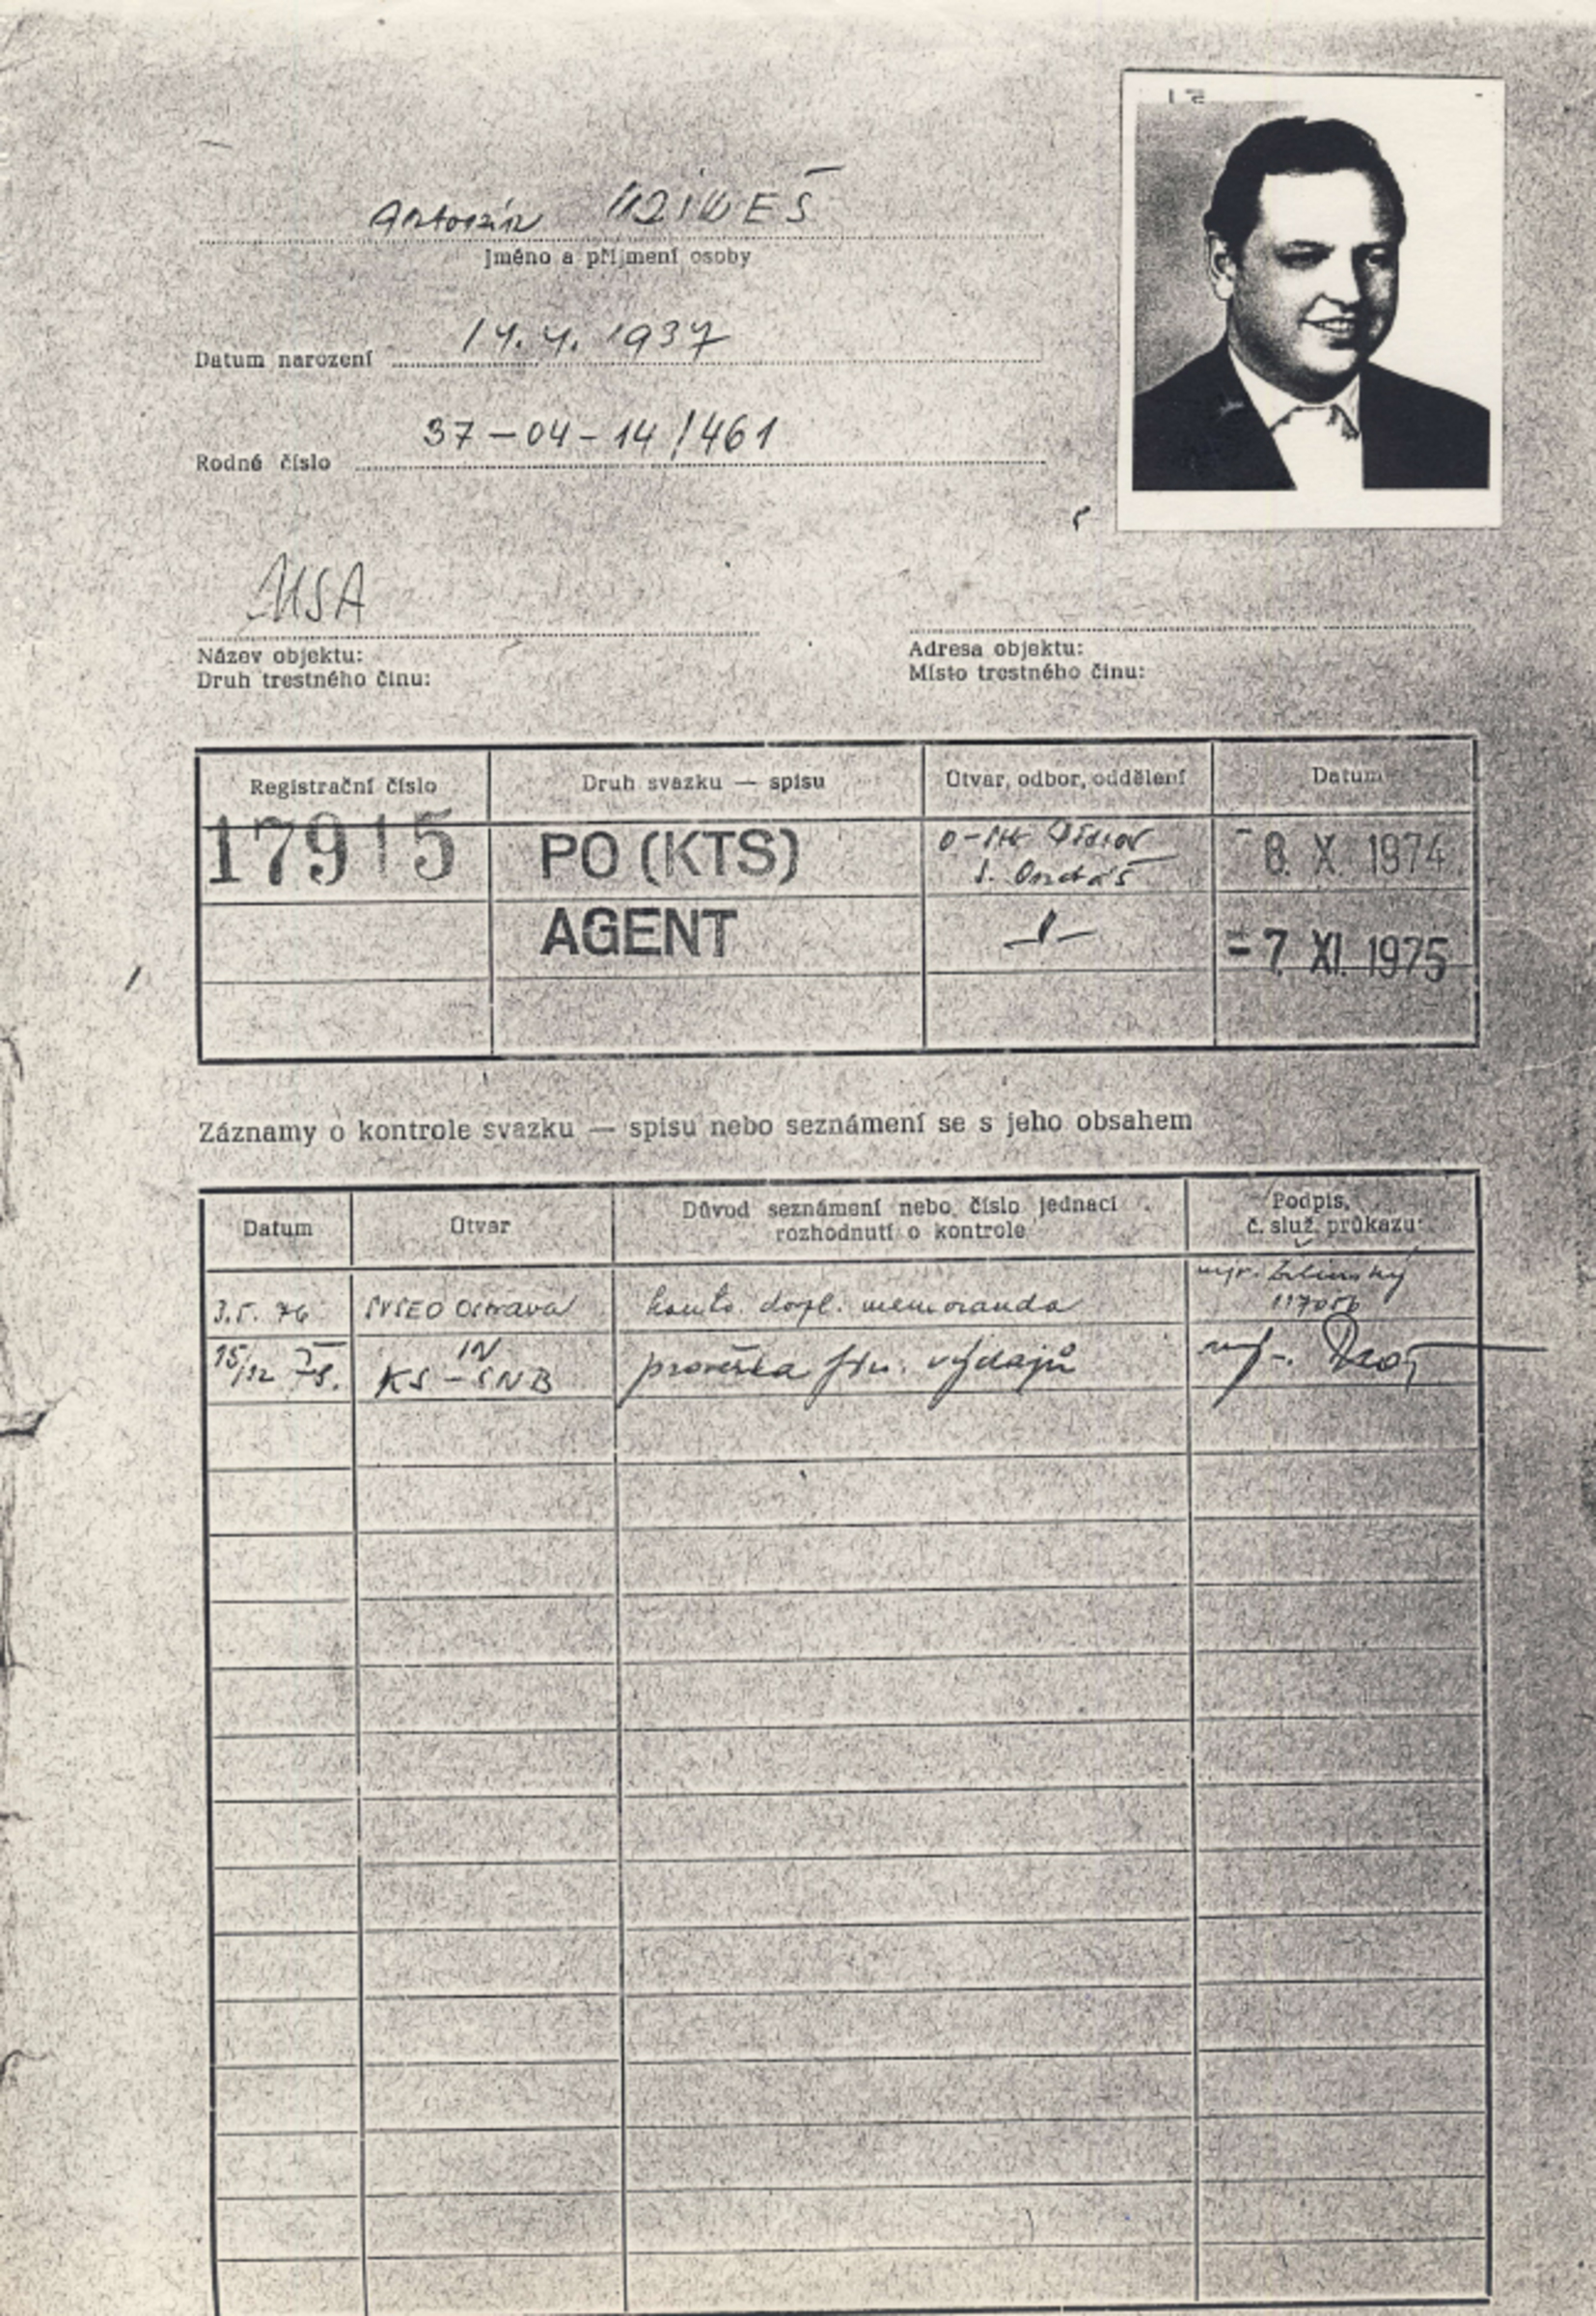 Antonín
Jméno a příjmení osoby
14. 4. 1937
Datum narození
37-04-14/461
Rodné číslo
USA
Název objektu:
Druh trestného činu:
Adresa objektu:
Místo trestného činu:
Registrační číslo Druh svazku — spisu Útvar, odbor, oddělení Datum
17915 PO (KTS) 8. X. 1974
AGENT -7. XI. 1975
Záznamy o kontrole svazku — spisu nebo seznámení se s jeho obsahem
Datum Útvar Důvod seznámení nebo číslo jednací rozhodnutí o kontrole Podpis, č. služ. průkazu:
3.5. 76 Ostrava dopl. memoranda
15/12 IN KS-SNB prověrka fin. výdajů